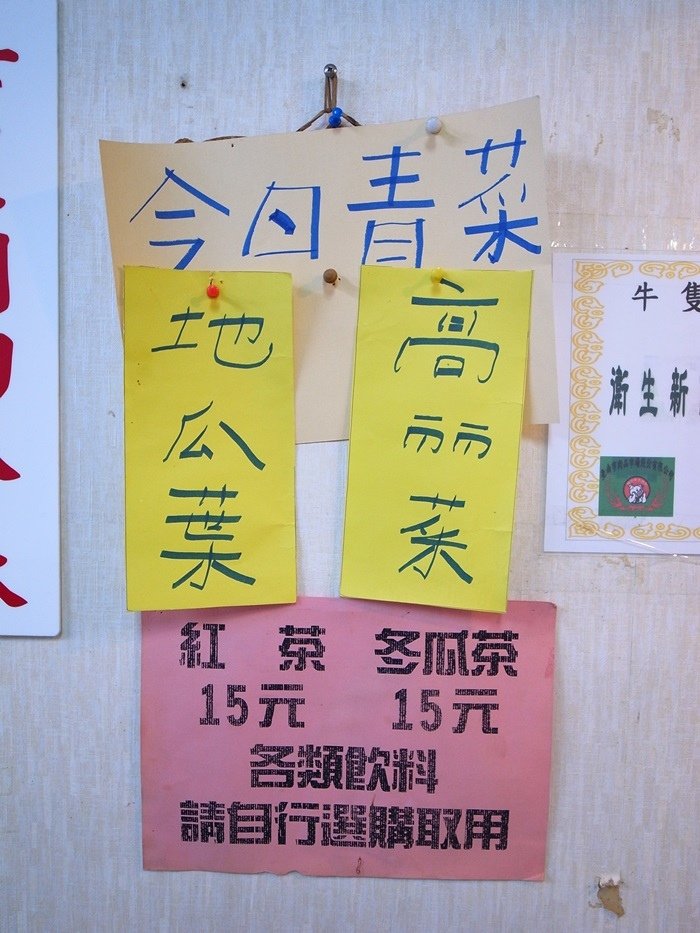 今日青菜
地瓜葉
高丽菜
紅茶 冬瓜茶
15元 15元
各類飲料
請自行選購取用
牛隻
衛生新